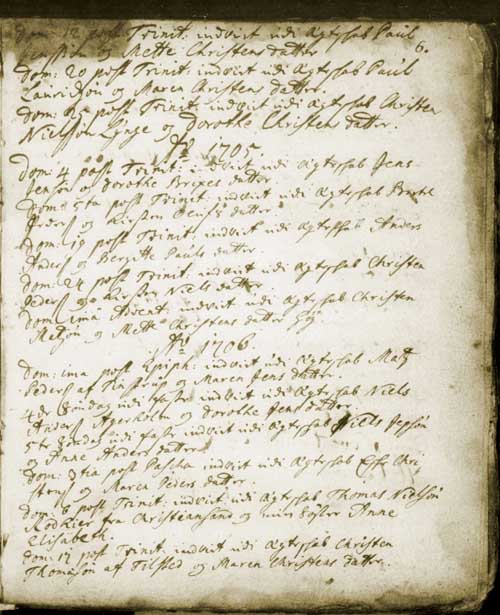 Dom: 12 post Trinit: indviet udi Ægteskab Paul
og Mette Christens datter 6.
Dom: 20 post Trinit: indviet udi Ægteskab Paul
Lauridsøn og Maren Christens datter.
Dom: 25 post Trinit: indviet udi Ægteskab Christen
Nielssøn og Dorothe Christens datter.
Aº 1705
Dom: 4 post Trinit: indviet udi Ægteskab Jens
Jensøn og Dorothe Brixes datter.
Dom: post Trinit: indviet udi Ægteskab
Peders og Kirsten datter.
Dom: 19 post Trinit: indviet udi Ægteskab Anders
Anders og Bergitte Pauls datter.
Dom: 24 post Trinit: indviet udi Ægteskab Christen
Peders og Kirsten Niels datter.
Dom: 1ma Advent: indviet udi Ægteskab Christen
og Mette Christens datter
Aº 1706.
Dom: 1ma post Epiph: indviet udi Ægteskab Mats
Peders af og Maren Jens datter.
4de Søndag udi faste indviet udi Ægteskab Niels
Anders Agerholm og Dorothe Jens datter
5te Søndag udi faste indviet udi Ægteskab Niels Jepsøn
og Anne Anders datter.
Dom: 3tia post Pascha indviet udi Ægteskab Chri
stens og Maren Peders datter.
Dom: 6 post Trinit: indviet udi Ægteskab Thomas Nielsøn
fra Christiansand og min søster Anne
Elisabeth.
Dom: 12 post Trinit: indviet udi Ægteskab Christen
Thomasøn af Tilsted og Maren Christens datter.